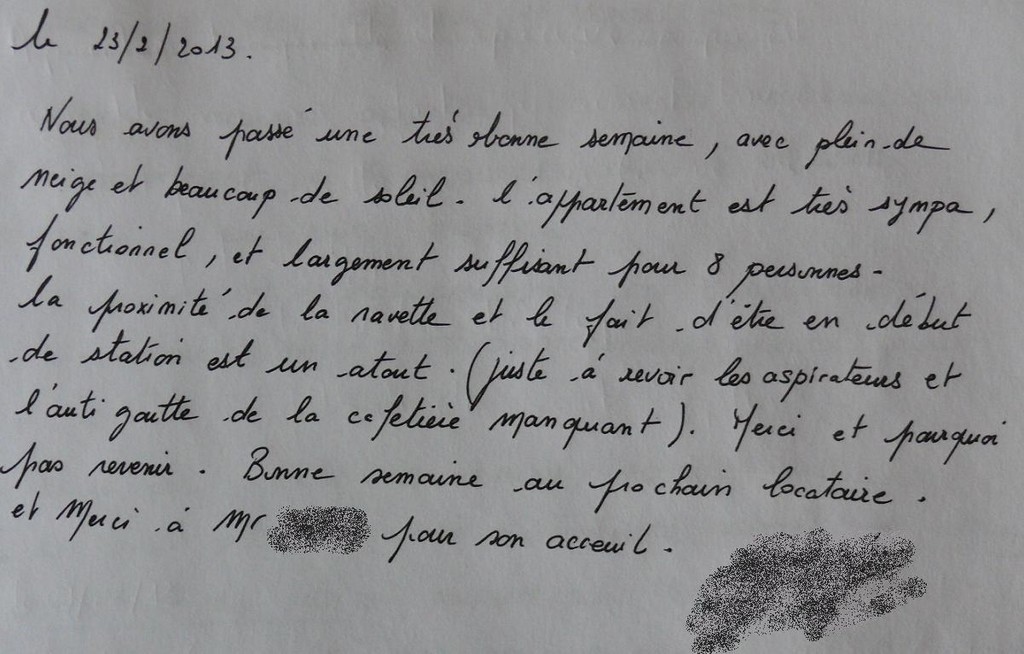 le 23/2/2013.
Nous avons passé une très bonne semaine, avec plein de
neige et beaucoup de soleil. l'appartement est très sympa,
fonctionnel, et largement suffisant pour 8 personnes.
la proximité de la navette et le fait d'être en début
de station est un atout. (juste à revoir les aspirateurs et
l'anti goutte de la cafetière manquant). Merci et pourquoi
pas revenir. Bonne semaine au prochain locataire.
et Merci à Mr pour son acceuil.